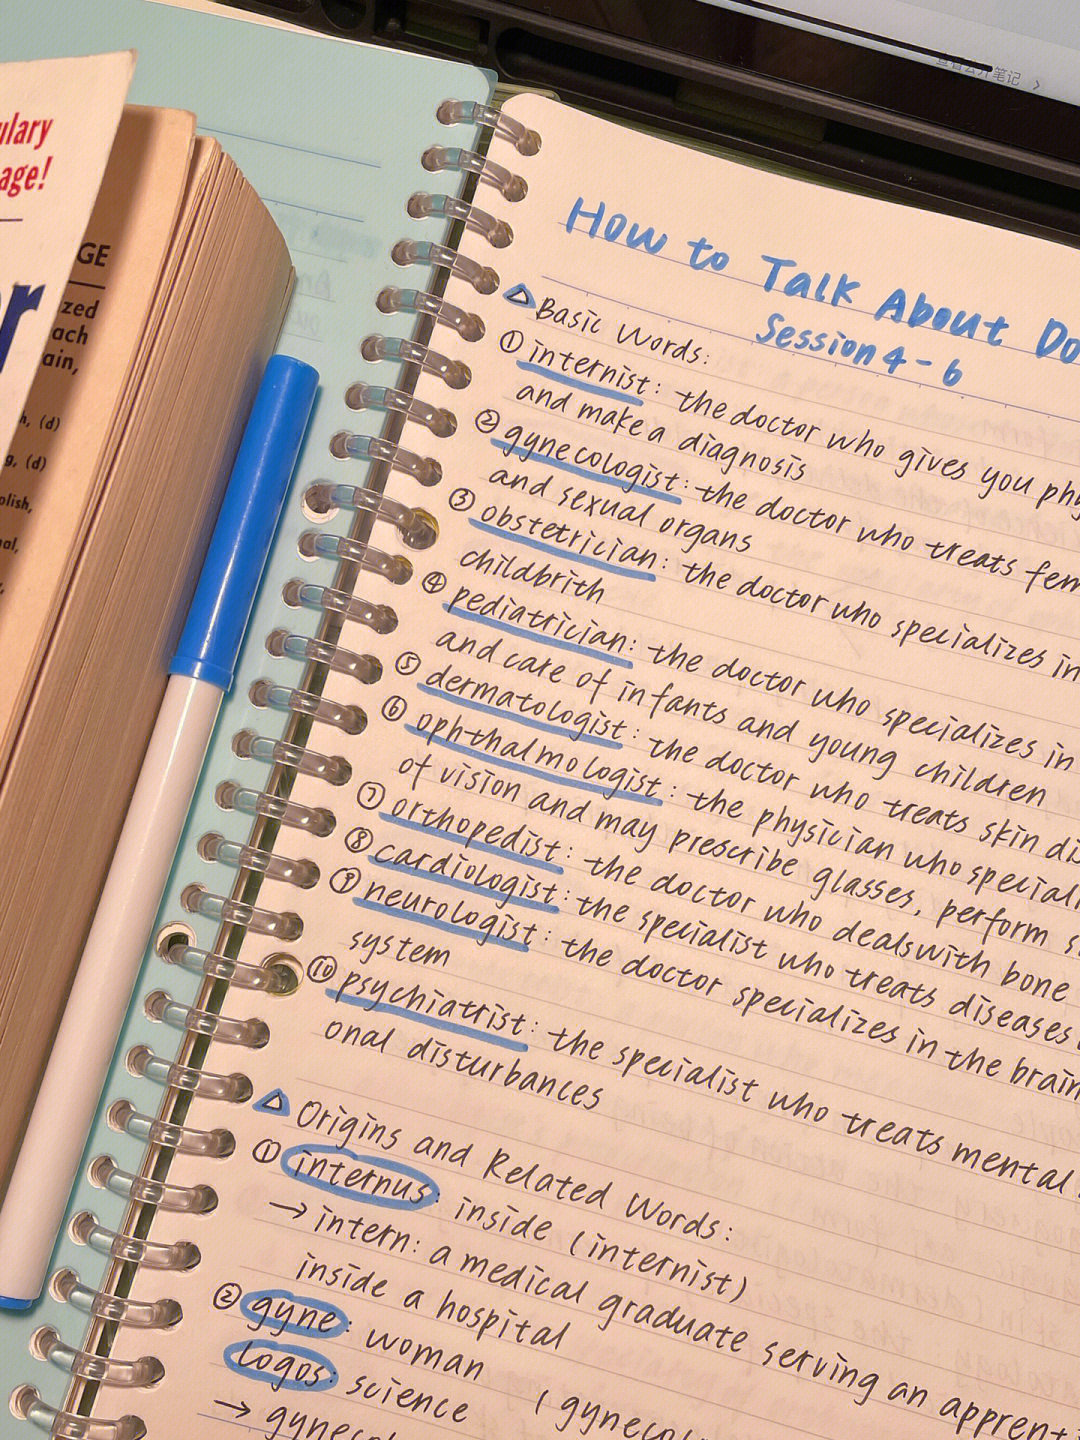 查看公开笔记
age!
GE
ach
ain,
h, (d)
g, (d)
How to Talk About
Session 4 - 6
△ Basic Words:
① internist: the doctor who gives you
and make a diagnosis
② gynecologist: the doctor who treats
and sexual organs
③ obstetrician: the doctor who specializes in
childbrith
④ pediatrician: the doctor who specializes in
and care of infants and young children
⑤ dermatologist: the doctor who treats skin
⑥ ophthalmologist: the physician who
of vision and may prescribe glasses, perform
⑦ orthopedist: the doctor who deals with bone
⑧ cardiologist: the specialist who treats diseases
⑨ neurologist: the doctor specializes in the brain
system
⑩ psychiatrist: the specialist who treats mental
onal disturbances
△ Origins and Related Words:
① internus: inside (internist)
→ intern: a medical graduate serving an
inside a hospital
② gyne: woman
logos: science